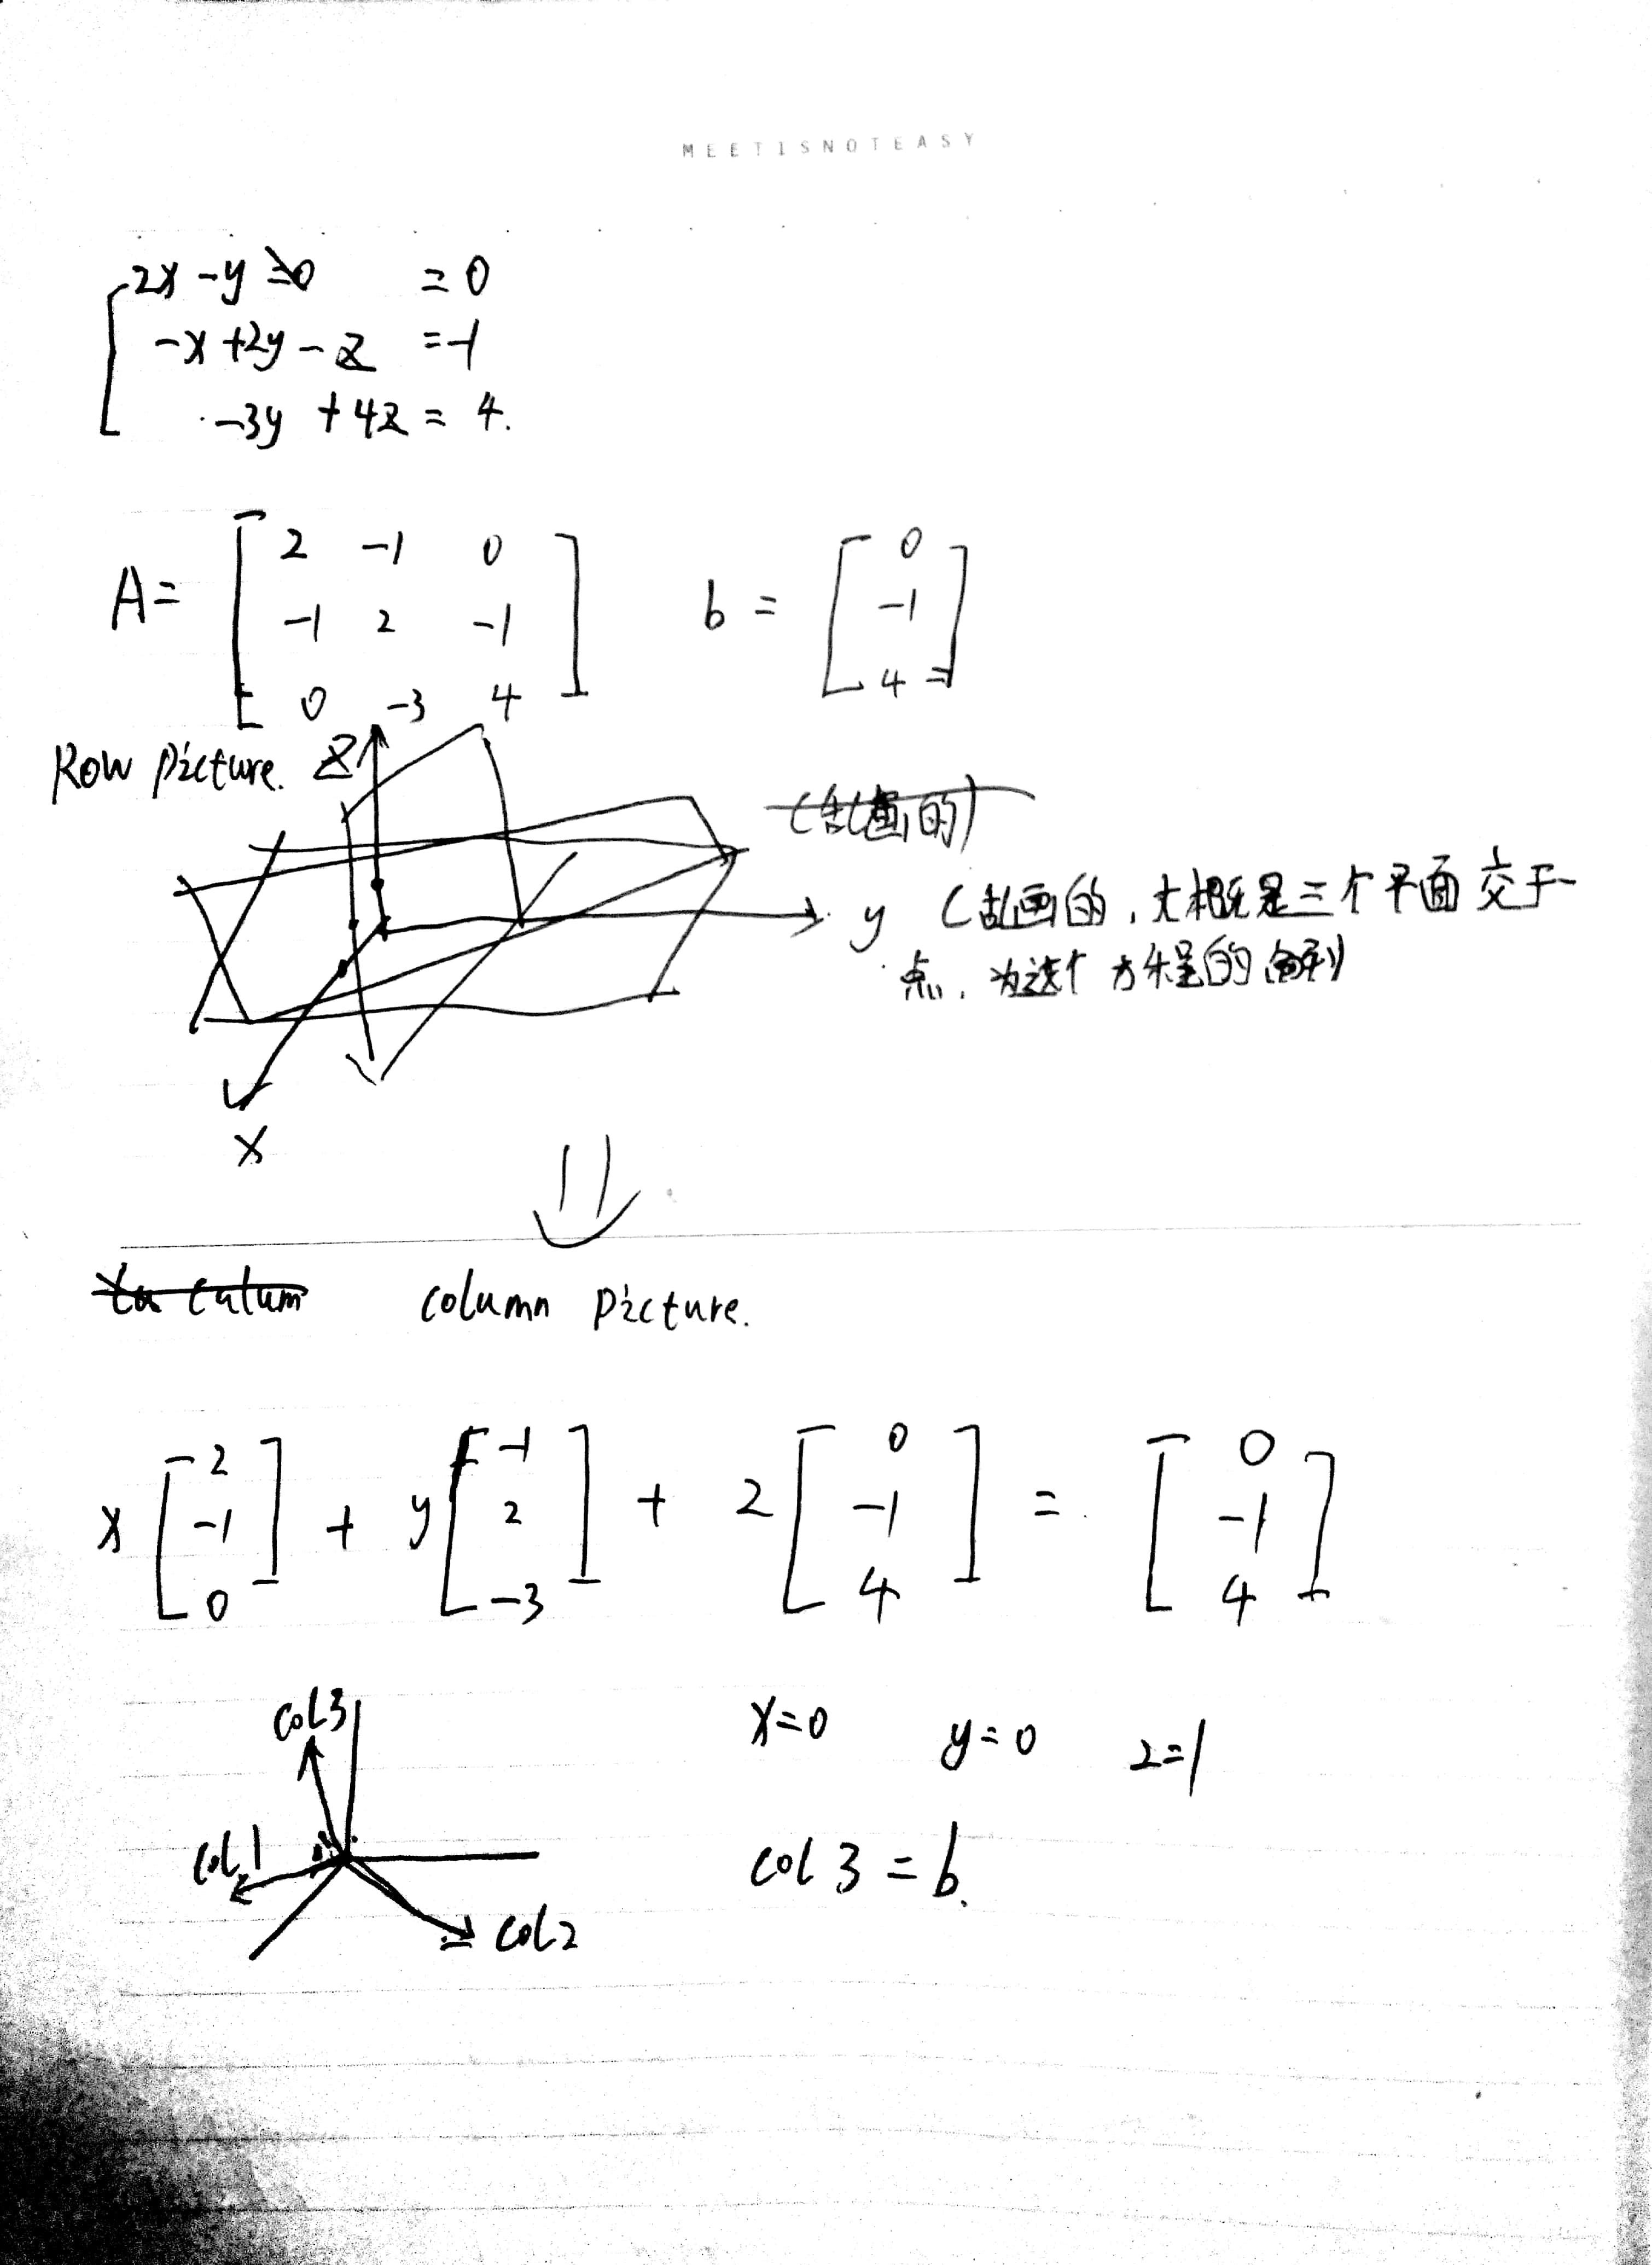 MEETISNOTEASY
2x -y = 0
-x +2y - z = -1
-3y + 4z = 4.
A = [ 2 -1 0
-1 2 -1
0 -3 4 ]
b = [ 0
-1
4 ]
Row picture.
z
(乱画的)
y (乱画的,大概是三个平面交于一
点,为这个方程的解)
x
column picture.
x [ 2 -1 0 ] + y [ -1 2 -3 ] + z [ 0 -1 4 ] = [ 0 -1 4 ]
col3
col1
col2
x=0 y=0 z=1
col 3 = b.